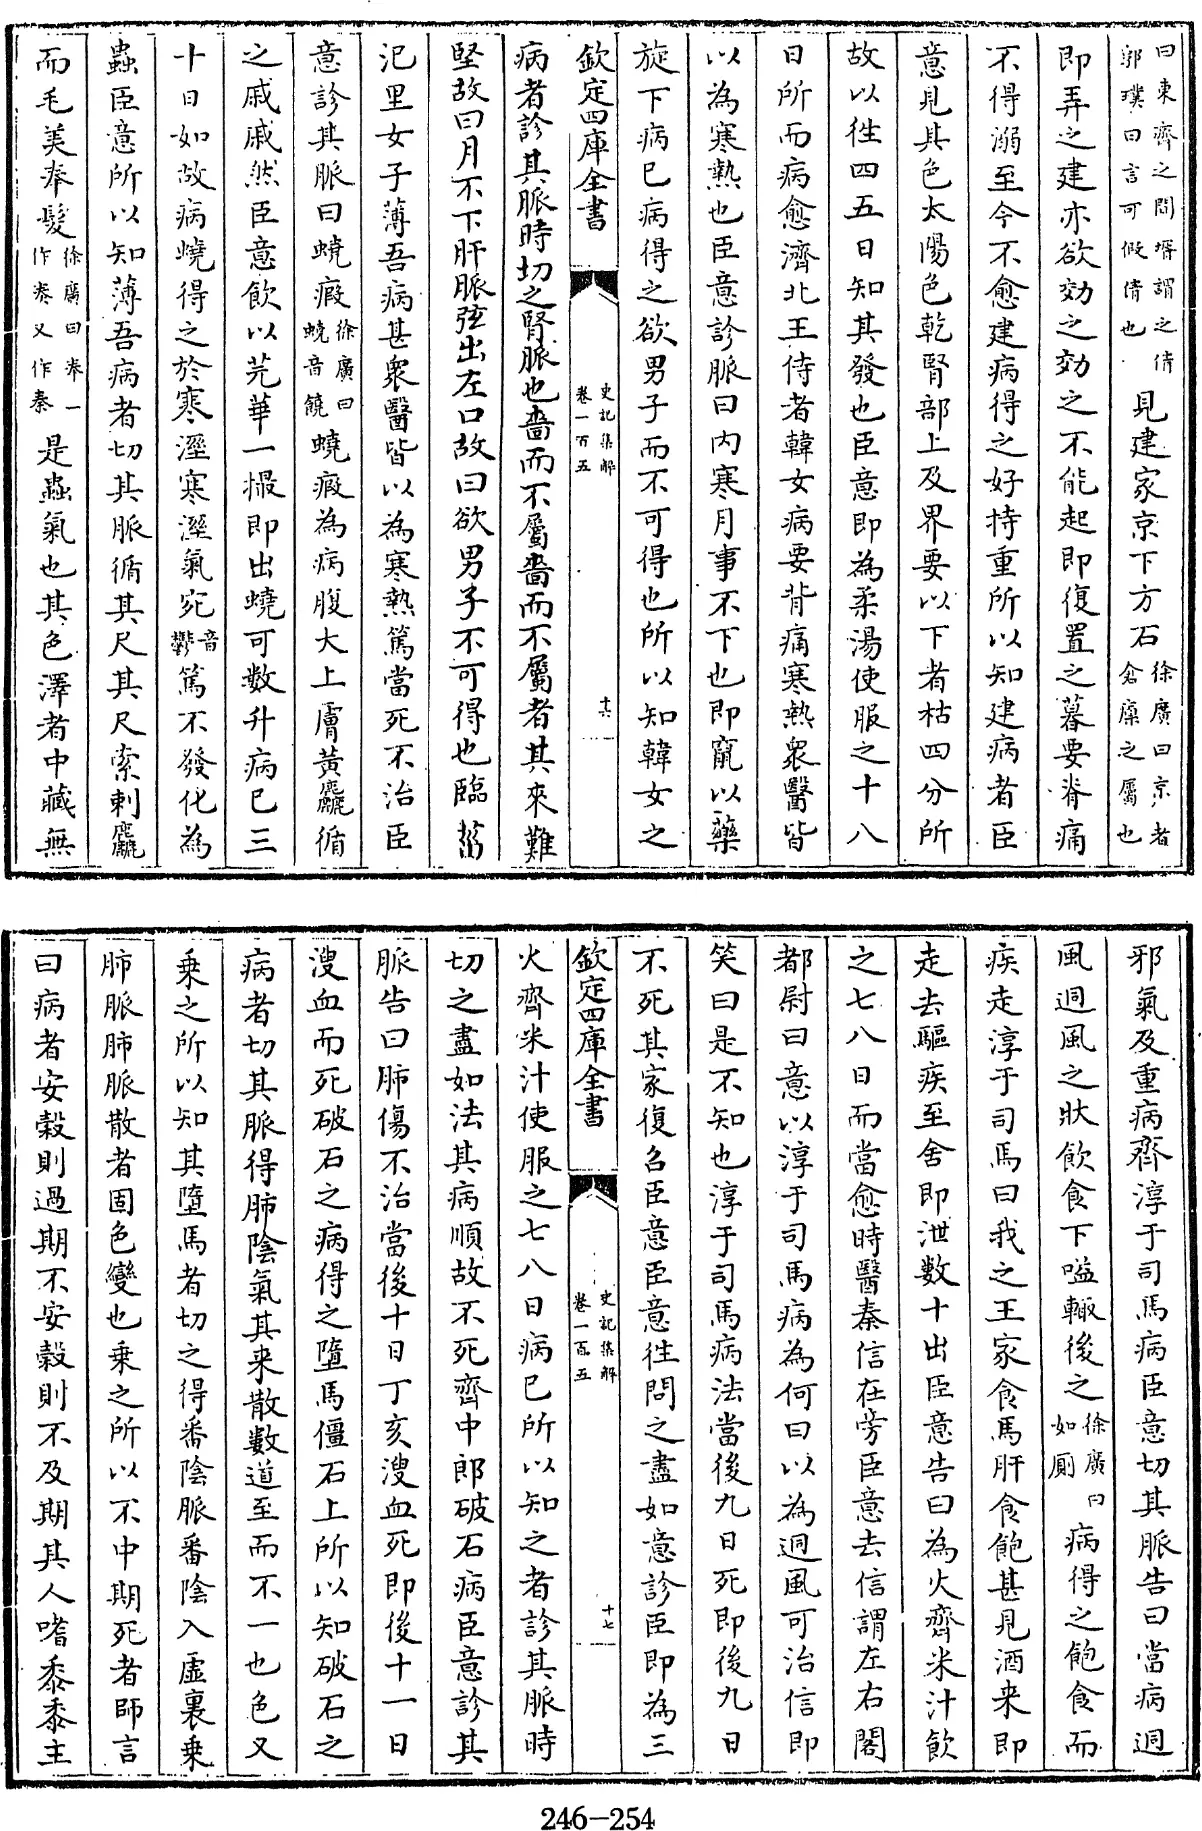 曰東齊之間壻謂之倩
郭璞曰言可假倩也
見建家京下方石
徐廣曰京者
倉廩之屬也
即弄之建亦欲効之効之不能起即復置之暮要脊痛
不得溺至今不愈建病得之好持重所以知建病者臣
意見其色太陽色乾腎部上及界要以下者枯四分所
故以徃四五日知其發也臣意即為柔湯使服之十八
日所而病愈濟北王侍者韓女病要背痛寒熱衆醫皆
以為寒熱也臣意診脈曰内寒月事不下也即竄以藥
旋下病已病得之欲男子而不可得也所以知韓女之
欽定四庫全書
史記集解
卷一百五
十六
病者診其脈時切之腎脈也嗇而不屬嗇而不屬者其來難
堅故曰月不下肝脈弦出左口故曰欲男子不可得也臨菑
氾里女子薄吾病甚衆醫皆以為寒熱篤當死不治臣
意診其脈曰蟯瘕
徐廣曰
蟯音饒
蟯瘕為病腹大上膚黃麤循
之戚戚然臣意飲以芫華一撮即出蟯可數升病已三
十日如故病蟯得之於寒溼寒溼氣宛
音
鬱
篤不發化為
蟲臣意所以知薄吾病者切其脈循其尺其尺索刺麤
而毛美奉髮
徐廣曰奉一
作奏又作秦
是蟲氣也其色澤者中藏無
邪氣及重病齊淳于司馬病臣意切其脈告曰當病迵
風迵風之狀飲食下嗌輙後之
徐廣曰
如厠
病得之飽食而
疾走淳于司馬曰我之王家食馬肝食飽甚見酒来即
走去驅疾至舍即泄數十出臣意告曰為火齊米汁飲
之七八日而當愈時醫秦信在旁臣意去信謂左右閣
都尉曰意以淳于司馬病為何曰以為迵風可治信即
笑曰是不知也淳于司馬病法當後九日死即後九日
不死其家復召臣意臣意徃問之盡如意診臣即為三
欽定四庫全書
史記集解
卷一百五
十七
火齊米汁使服之七八日病已所以知之者診其脈時
切之盡如法其病順故不死齊中郎破石病臣意診其
脈告曰肺傷不治當後十日丁亥溲血死即後十一日
溲血而死破石之病得之墮馬僵石上所以知破石之
病者切其脈得肺陰氣其来散數道至而不一也色又
乗之所以知其墮馬者切之得番陰脈番陰入虛裏乗
肺脈肺脈散者固色變也乗之所以不中期死者師言
曰病者安穀則過期不安穀則不及期其人嗜黍黍主
246-254